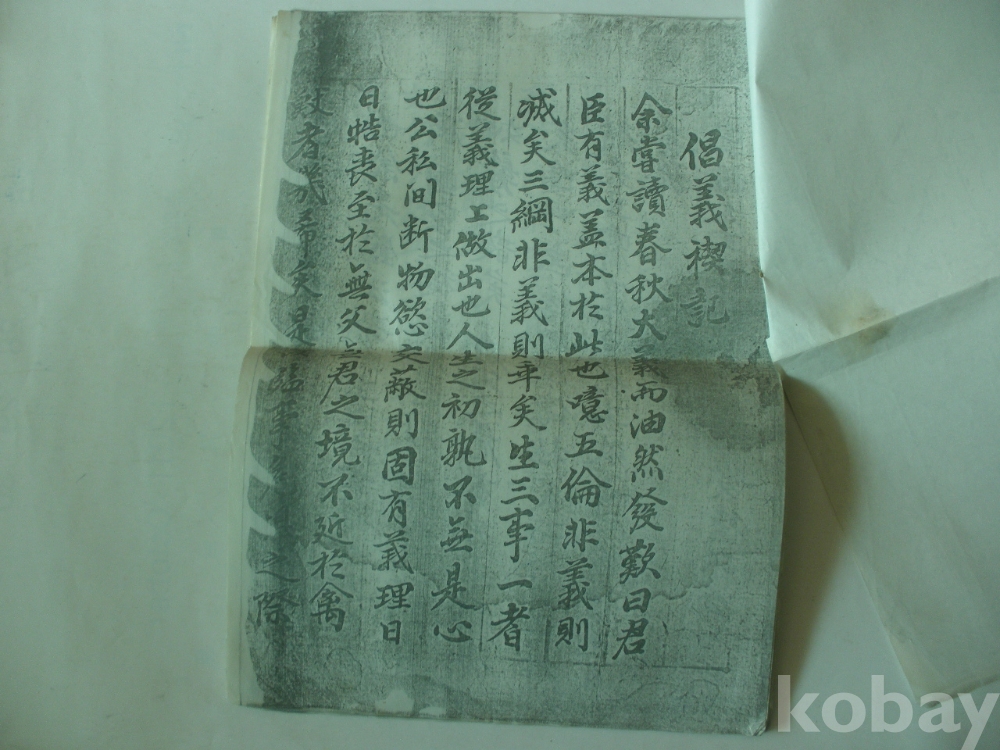 倡義禊記
余嘗讀春秋大義而油然發歎曰君
臣有義盖本於此也噫五倫非義則
滅矣三綱非義則乖矣生三事一者
從義理上做出也人生之初孰不無是心
也公私间断物慾交蔽則固有義理日
日牿丧至於無父無君之境不近於禽
者幾希矣是 之際
kobay